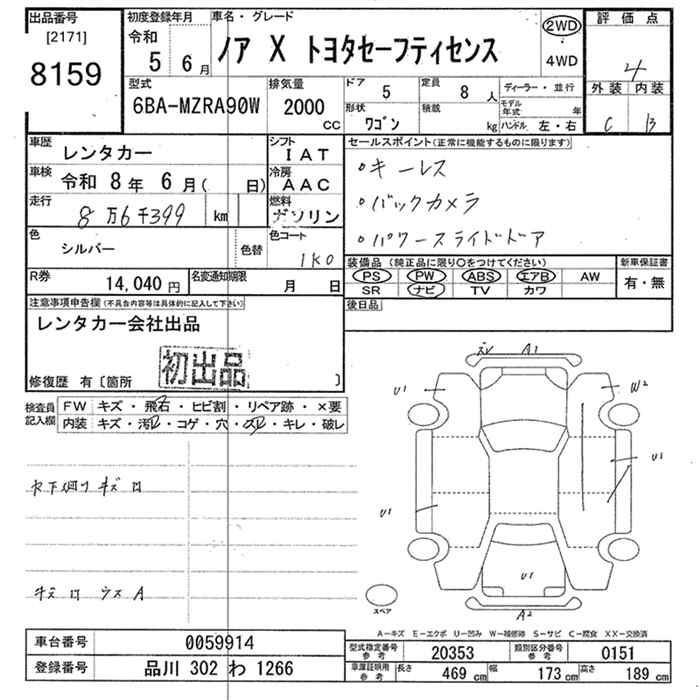 出品番号
[2171]
8159
初度登録年月
令和
5 6月
車名・グレード
ノア X トヨタセーフティセンス
2WD
4WD
評価点
4
外装 内装
C B
型式
6BA-MZRA90W
排気量
2000 cc
ドア 5
定員 8 人
形状 ワゴン
積載 kg
ディーラー・並行
モデル年式 年
ハンドル 左・右
車歴 レンタカー
シフト IAT
車検 令和 8年 6月( 日)
冷房 AAC
走行 8万6千399 km
燃料 ガソリン
色 シルバー 色替
色コード 1K0
R券 14,040円
名変通知期限 月 日
セールスポイント(正常に機能するものに限ります)
○キーレス
○バックカメラ
○パワースライドドア
装備品(純正品に限り○をつけてください)
PS PW ABS エアB AW
SR ナビ TV カワ
新車保証書
有・無
後日品
注意事項申告欄(不具合内容等は具体的に記入して下さい)
レンタカー会社出品
初出品
修復歴 有〔箇所 〕
検査員記入欄
FW キズ・飛石・ヒビ割・リペア跡・×要
内装 キズ・汚れ・コゲ・穴・スレ・キレ・破レ
A1
U1
W2
U1
U1
U1
A2
スペア
A−キズ E−エクボ U−凹み W−補修跡 S−サビ C−腐食 XX−交換済
車台番号 0059914
登録番号 品川 302 わ 1266
型式指定番号 参考 20353
類別区分番号 参考 0151
車庫証明用 参考 長さ 469 cm 幅 173 cm 高さ 189 cm